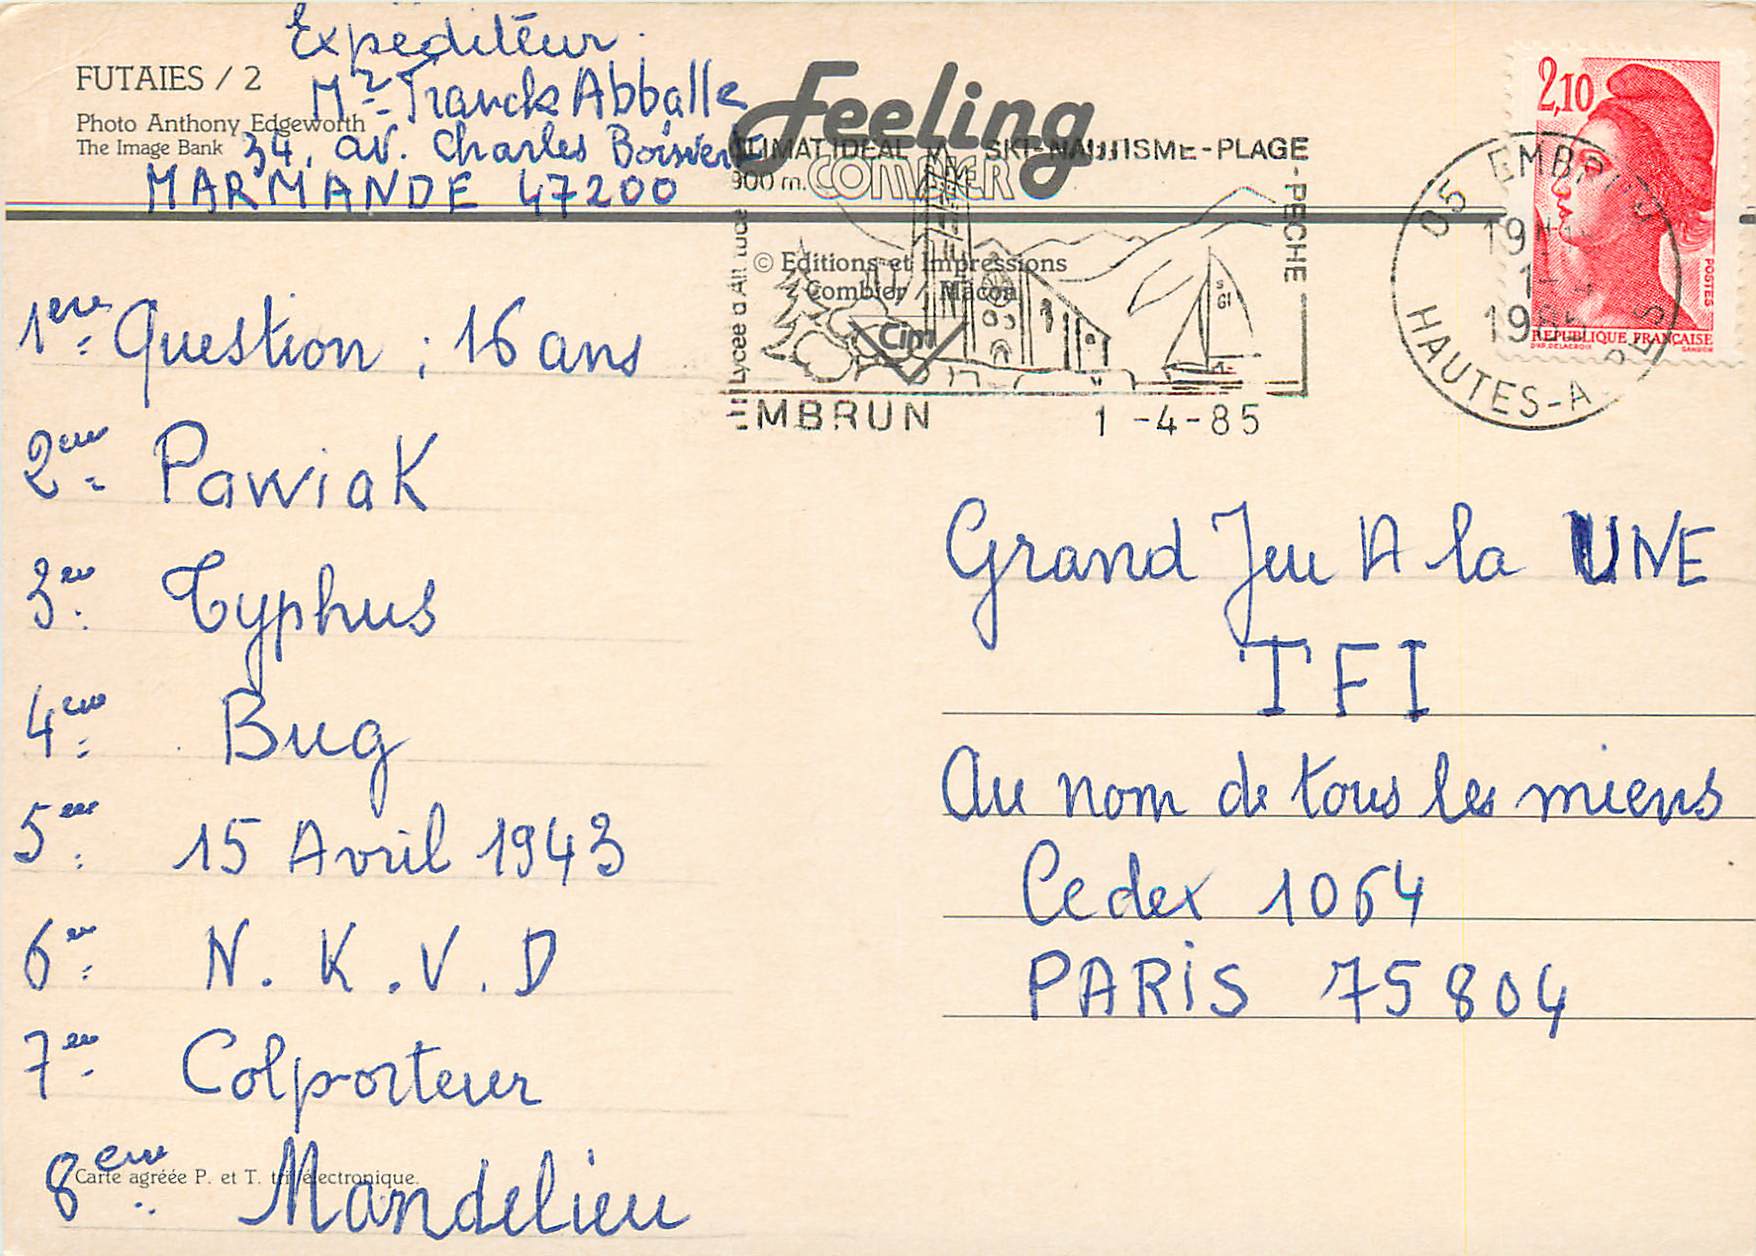 Expéditeur.
FUTAIES / 2
Mr Franck Abballe
Photo Anthony Edgeworth
The Image Bank
34, av. Charles Boisvert
MARMANDE 47200
Feeling
COMBIER
CLIMAT IDEAL SKI-NAUTISME-PLAGE
-PECHE
900 m.
Lycée d'Altitude
© Editions et Impressions
Combier / Mâcon
Cim
EMBRUN 1-4-85
2,10
POSTES
REPUBLIQUE FRANÇAISE
D'AP. DELACROIX GANDON
05 EMBRUN
19H
1-4
1985
HAUTES-ALPES
1ere Question ; 16 ans
2eme Pawiak
3eme Typhus
4eme Bug
5eme 15 Avril 1943
6eme N.K.V.D
7eme Colporteur
8eme Mandelieu
Carte agréée P. et T. tri électronique.
Grand Jeu A la UNE
TFI
Au nom de tous les miens
Cedex 1064
PARiS 75804